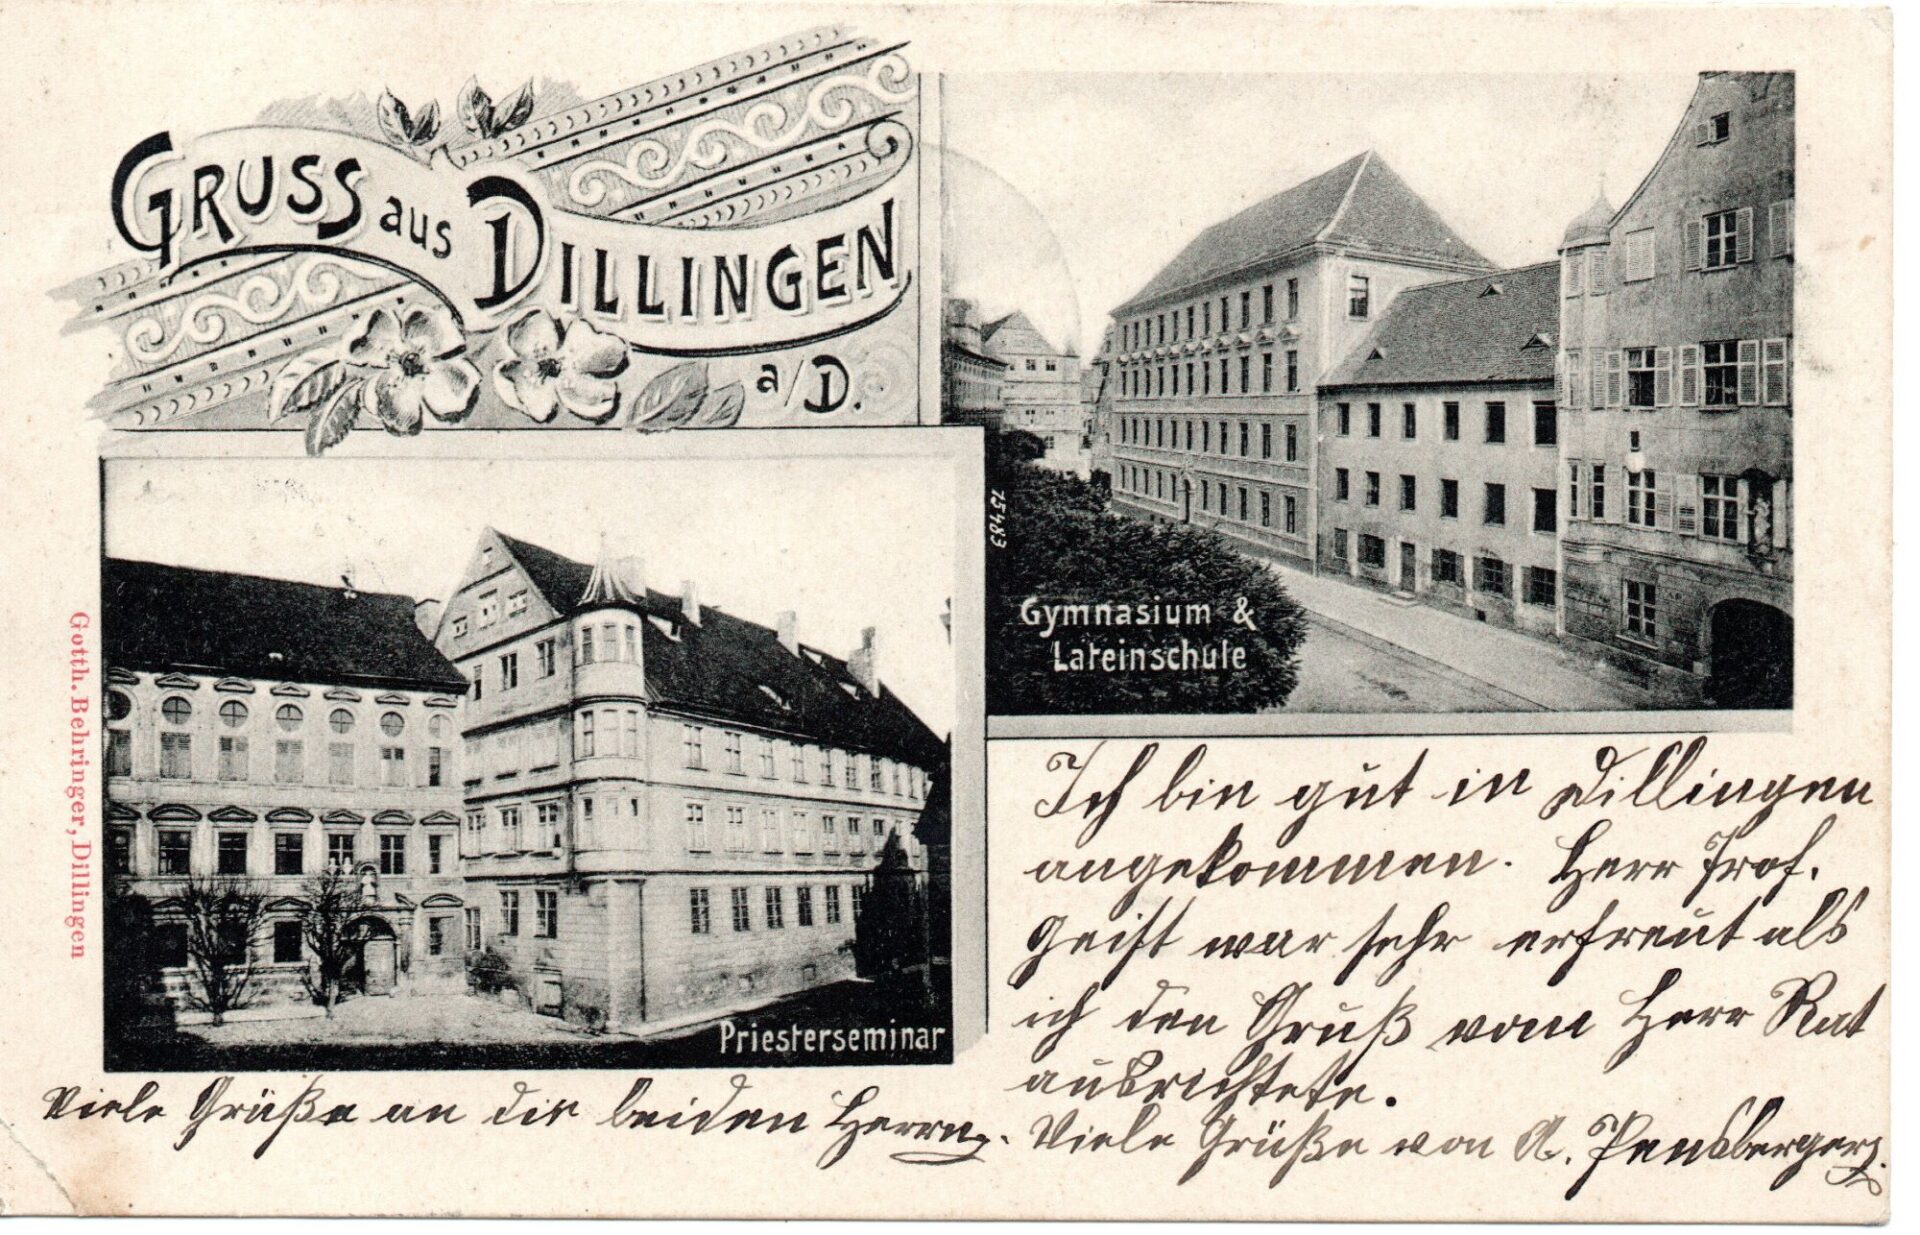 GRUSS aus DILLINGEN
a/D.
75483
Gymnasium &
Lateinschule
Gotth. Behringer, Dillingen
Priesterseminar
Ich bin gut in Dillingen
angekommen. Herr Prof.
Geist war sehr erfreut als
ich den Gruß vom Herr Rat
ausrichtete.
Viele Grüße an die beiden Herrn.
Viele Grüße von A. Pensberger.